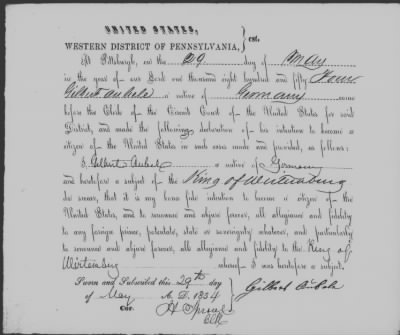 UNITED STATES,
WESTERN DISTRICT OF PENNSYLVANIA, } sct.
At Pittsburgh, on the 29 day of May
in the year of our Lord one thousand eight hundred and fifty Four
Gilbert Aubele a native of Germany came
before the Clerk of the Circuit Court of the United States for said
District, and made the following declaration of his intention to become a
citizen of the United States in such cases made and provided, as follows:
I, Gilbert Aubele a native of Germany
and heretofore a subject of the King of Wirtemburg
do swear, that it is my bona fide intention to become a citizen of the
United States, and to renounce and abjure forever, all allegiance and fidelity
to any foreign prince, potentate, state or sovereignty whatever, and particularly
to renounce and abjure forever, all allegiance and fidelity to the King of
Wirtemburg whereof I was heretofore a subject.
Sworn and Subscribed this 29th day
of May A. D. 1854
Gilbert Aubele
Cor. H Sproul
Clk